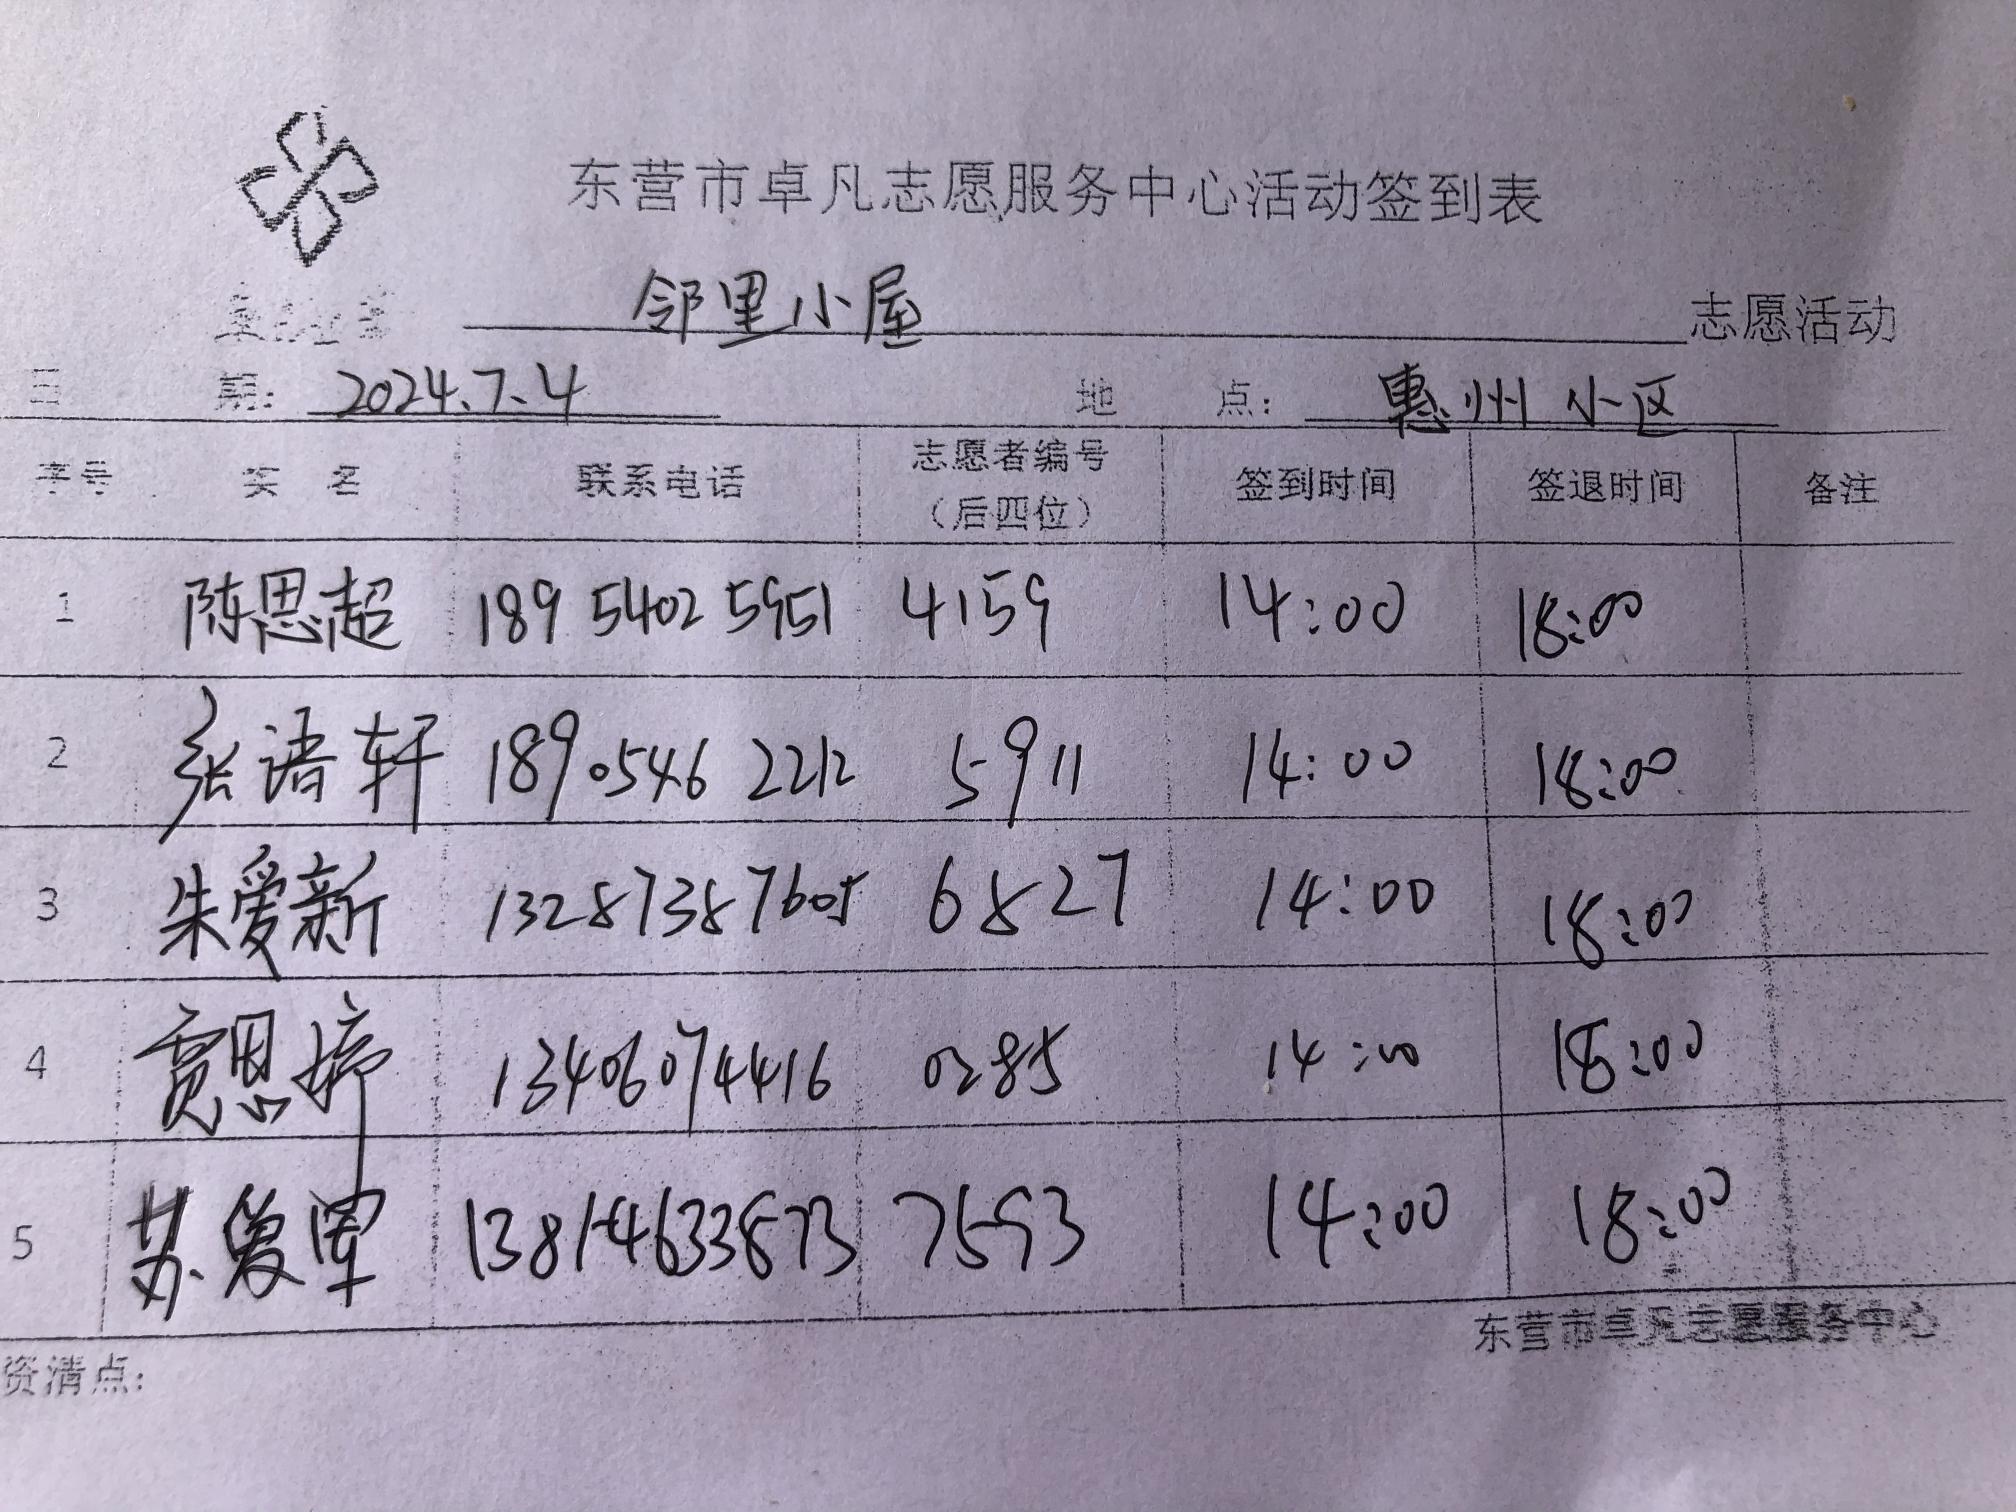 东营市卓凡志愿服务中心活动签到表
邻里小屋 志愿活动
日 期: 2024.7.4 地 点: 惠州小区
序号 姓 名 联系电话 志愿者编号（后四位） 签到时间 签退时间 备注
1 陈思超 189 5402 5951 4159 14:00 18:00
2 张语轩 189 0546 2212 5911 14:00 18:00
3 朱爱新 13287387605 6827 14:00 18:00
4 贾思婷 13406074416 0285 14:00 18:00
5 苏爱军 13814633873 7593 14:00 18:00
东营市卓凡志愿服务中心
资清点: